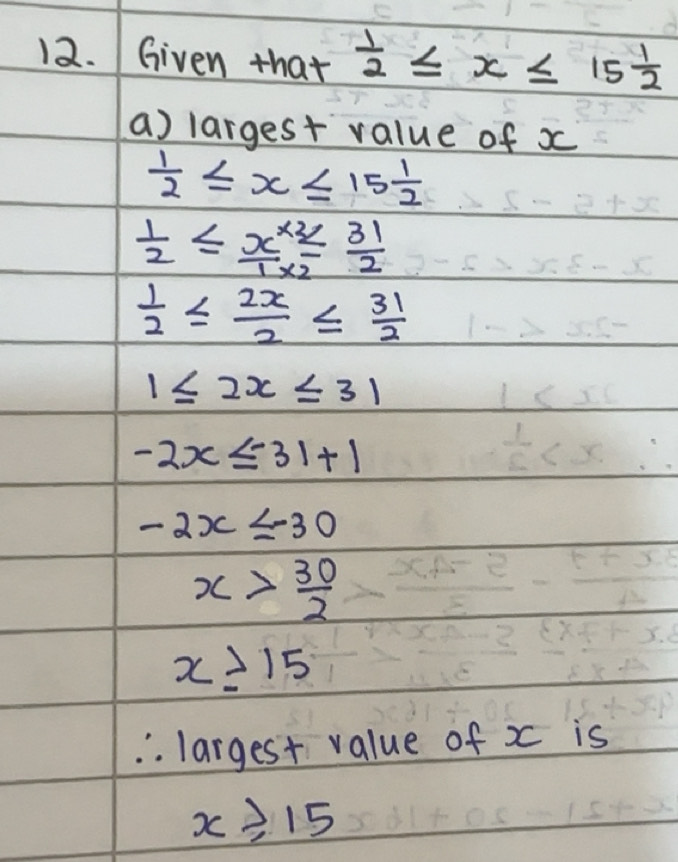 12. Given that 1/2 ≤ x ≤ 15 1/2
a) largest value of x
1/2 ≤ x ≤ 15 1/2
1/2 ≤ x×2/1×2 ≤ 31/2
1/2 ≤ 2x/2 ≤ 31/2
1 ≤ 2x ≤ 31
-2x ≤ -31+1
-2x ≤ -30
x > 30/2
x ≥ 15
∴ largest value of x is
x ≥ 15